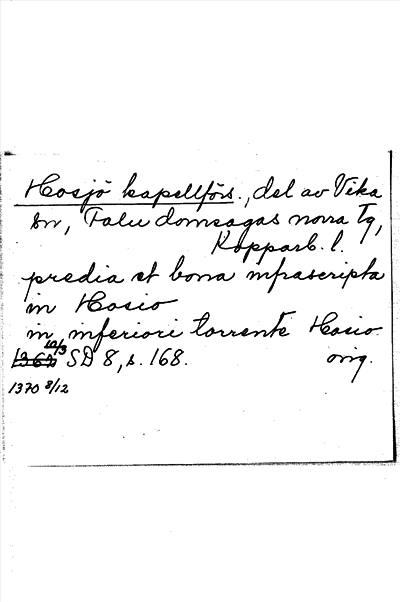 Hosjö kapellförs., del av Vika
sn, Falu domsagas norra tg,
Kopparb. l.
predia et bona infrascripta
in Hosio
in inferiori torrente Hosio.
10/3
SD 8, s. 168. orig.
1370 8/12